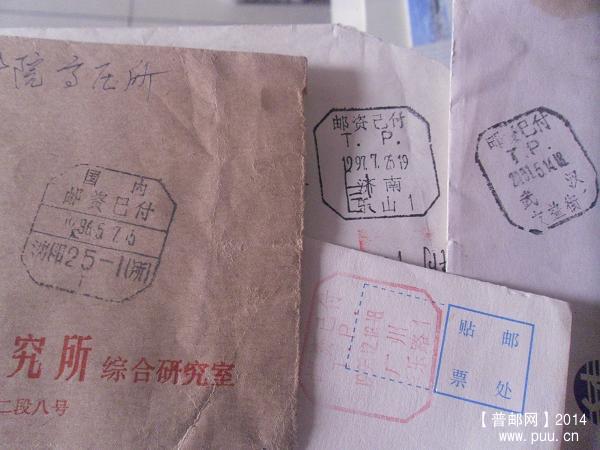 院高压所
国内
邮资已付
1996.5.7.15
沈阳25-1(所)
究所 综合研究室
二段八号
邮资已付
T. P.
1997.7.25.19
济南
山1
邮资已付
T. P.
2001.5.14.18
武汉
街
已付
T. P.
广州
乐路1
贴邮
票处
【普邮网】2014
www.puu.cn